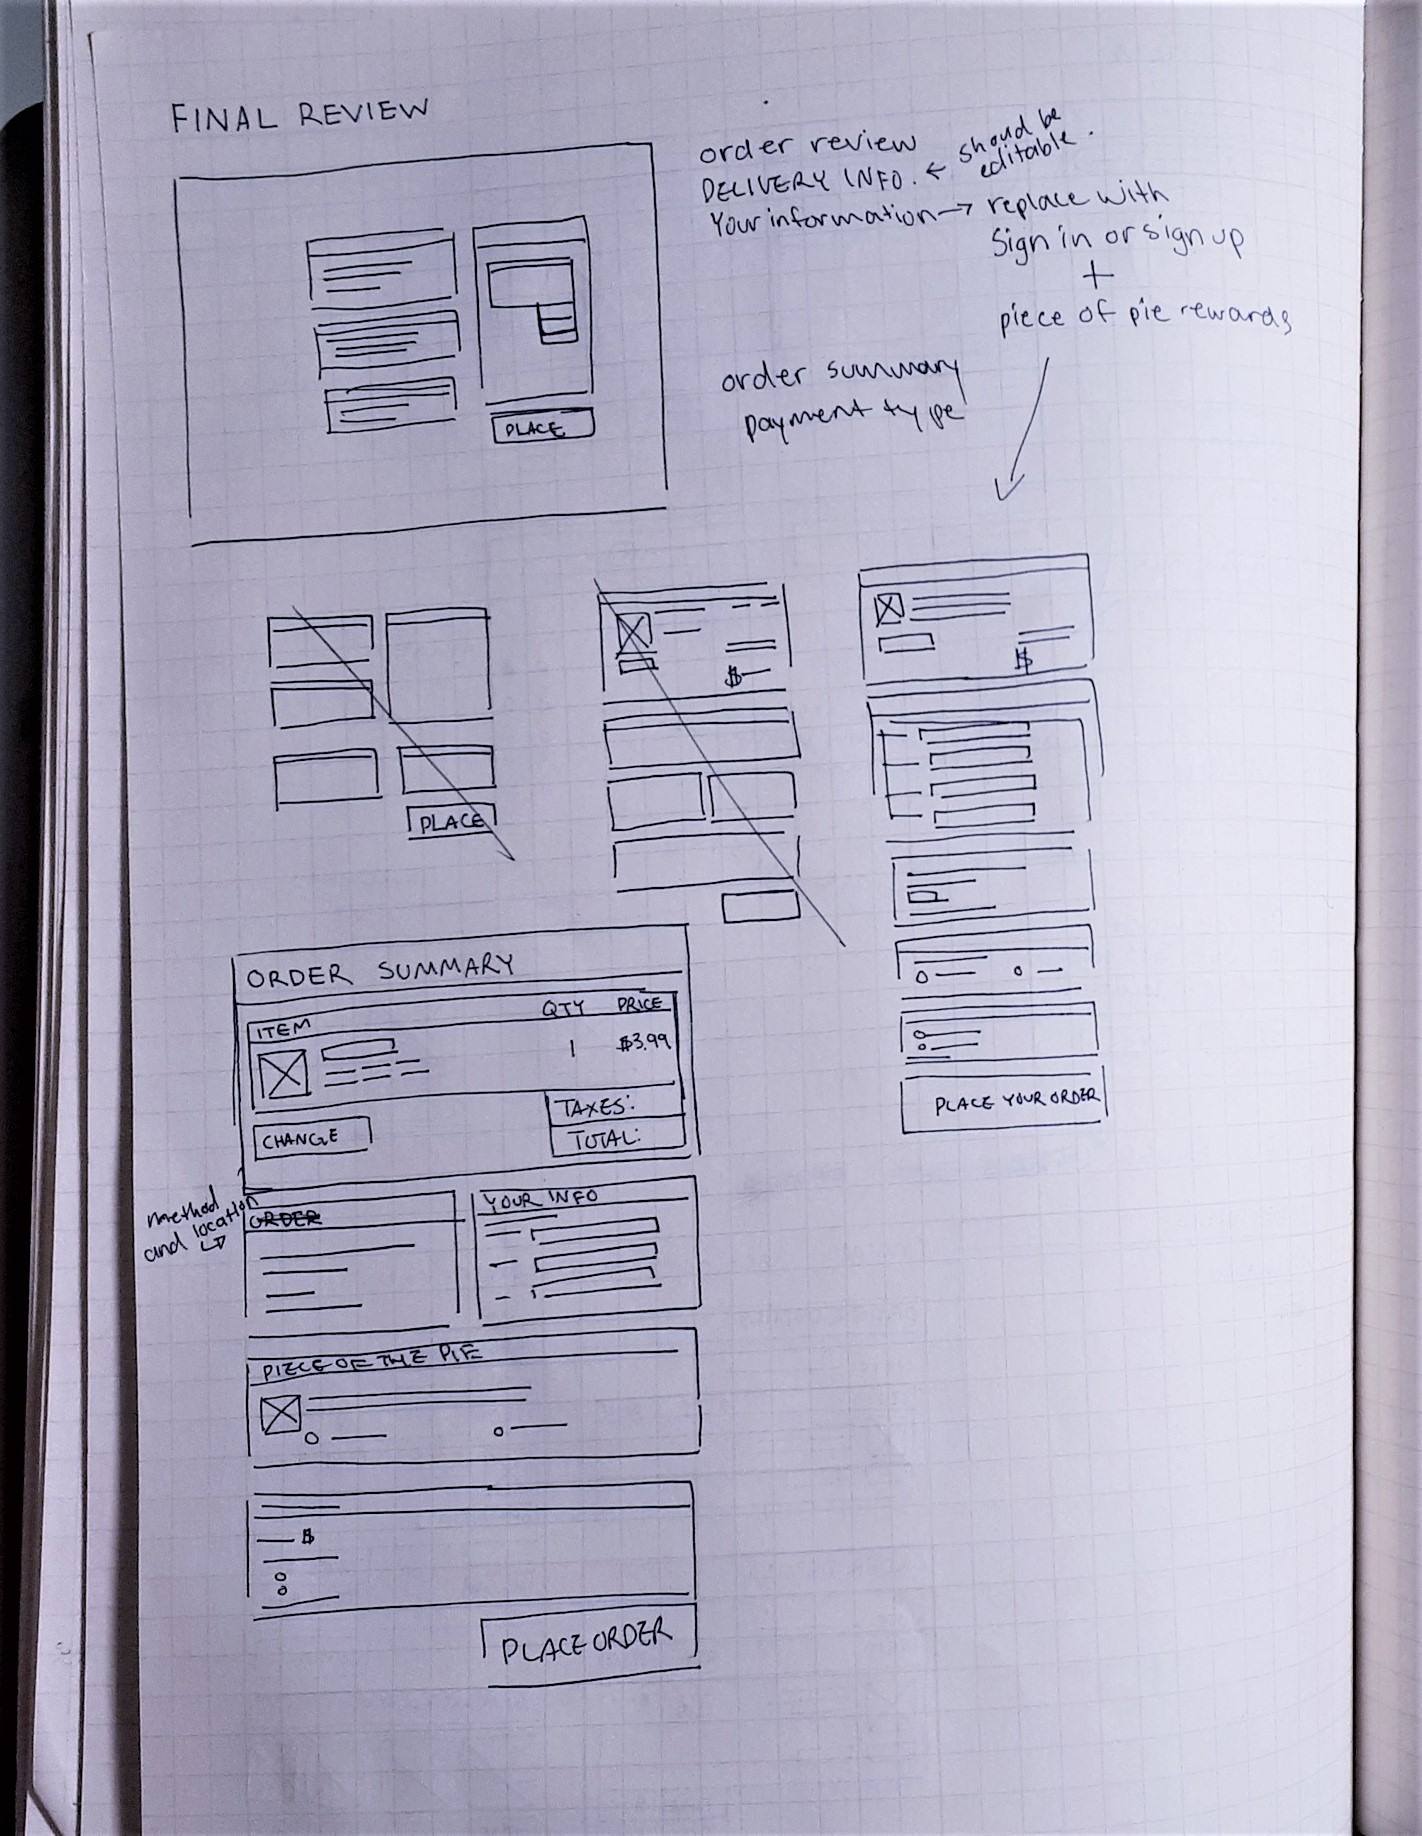 FINAL REVIEW
order review
DELIVERY INFO. ← should be
editable.
Your information → replace with
Sign in or sign up
+
piece of pie rewards
order summary
payment type
PLACE
PLACE
$
$
ORDER SUMMARY
ITEM QTY PRICE
1 $3.99
TAXES:
CHANGE TOTAL:
PLACE YOUR ORDER
method
and location
ORDER
YOUR INFO
PIECE OF THE PIE
$
PLACE ORDER